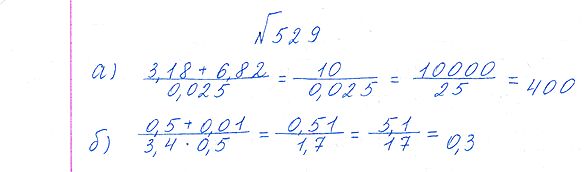 №529
а) (3,18 + 6,82)/(0,025) = 10/(0,025) = 10000/25 = 400
б) (0,5 + 0,01)/(3,4 · 0,5) = (0,51)/(1,7) = (5,1)/17 = 0,3